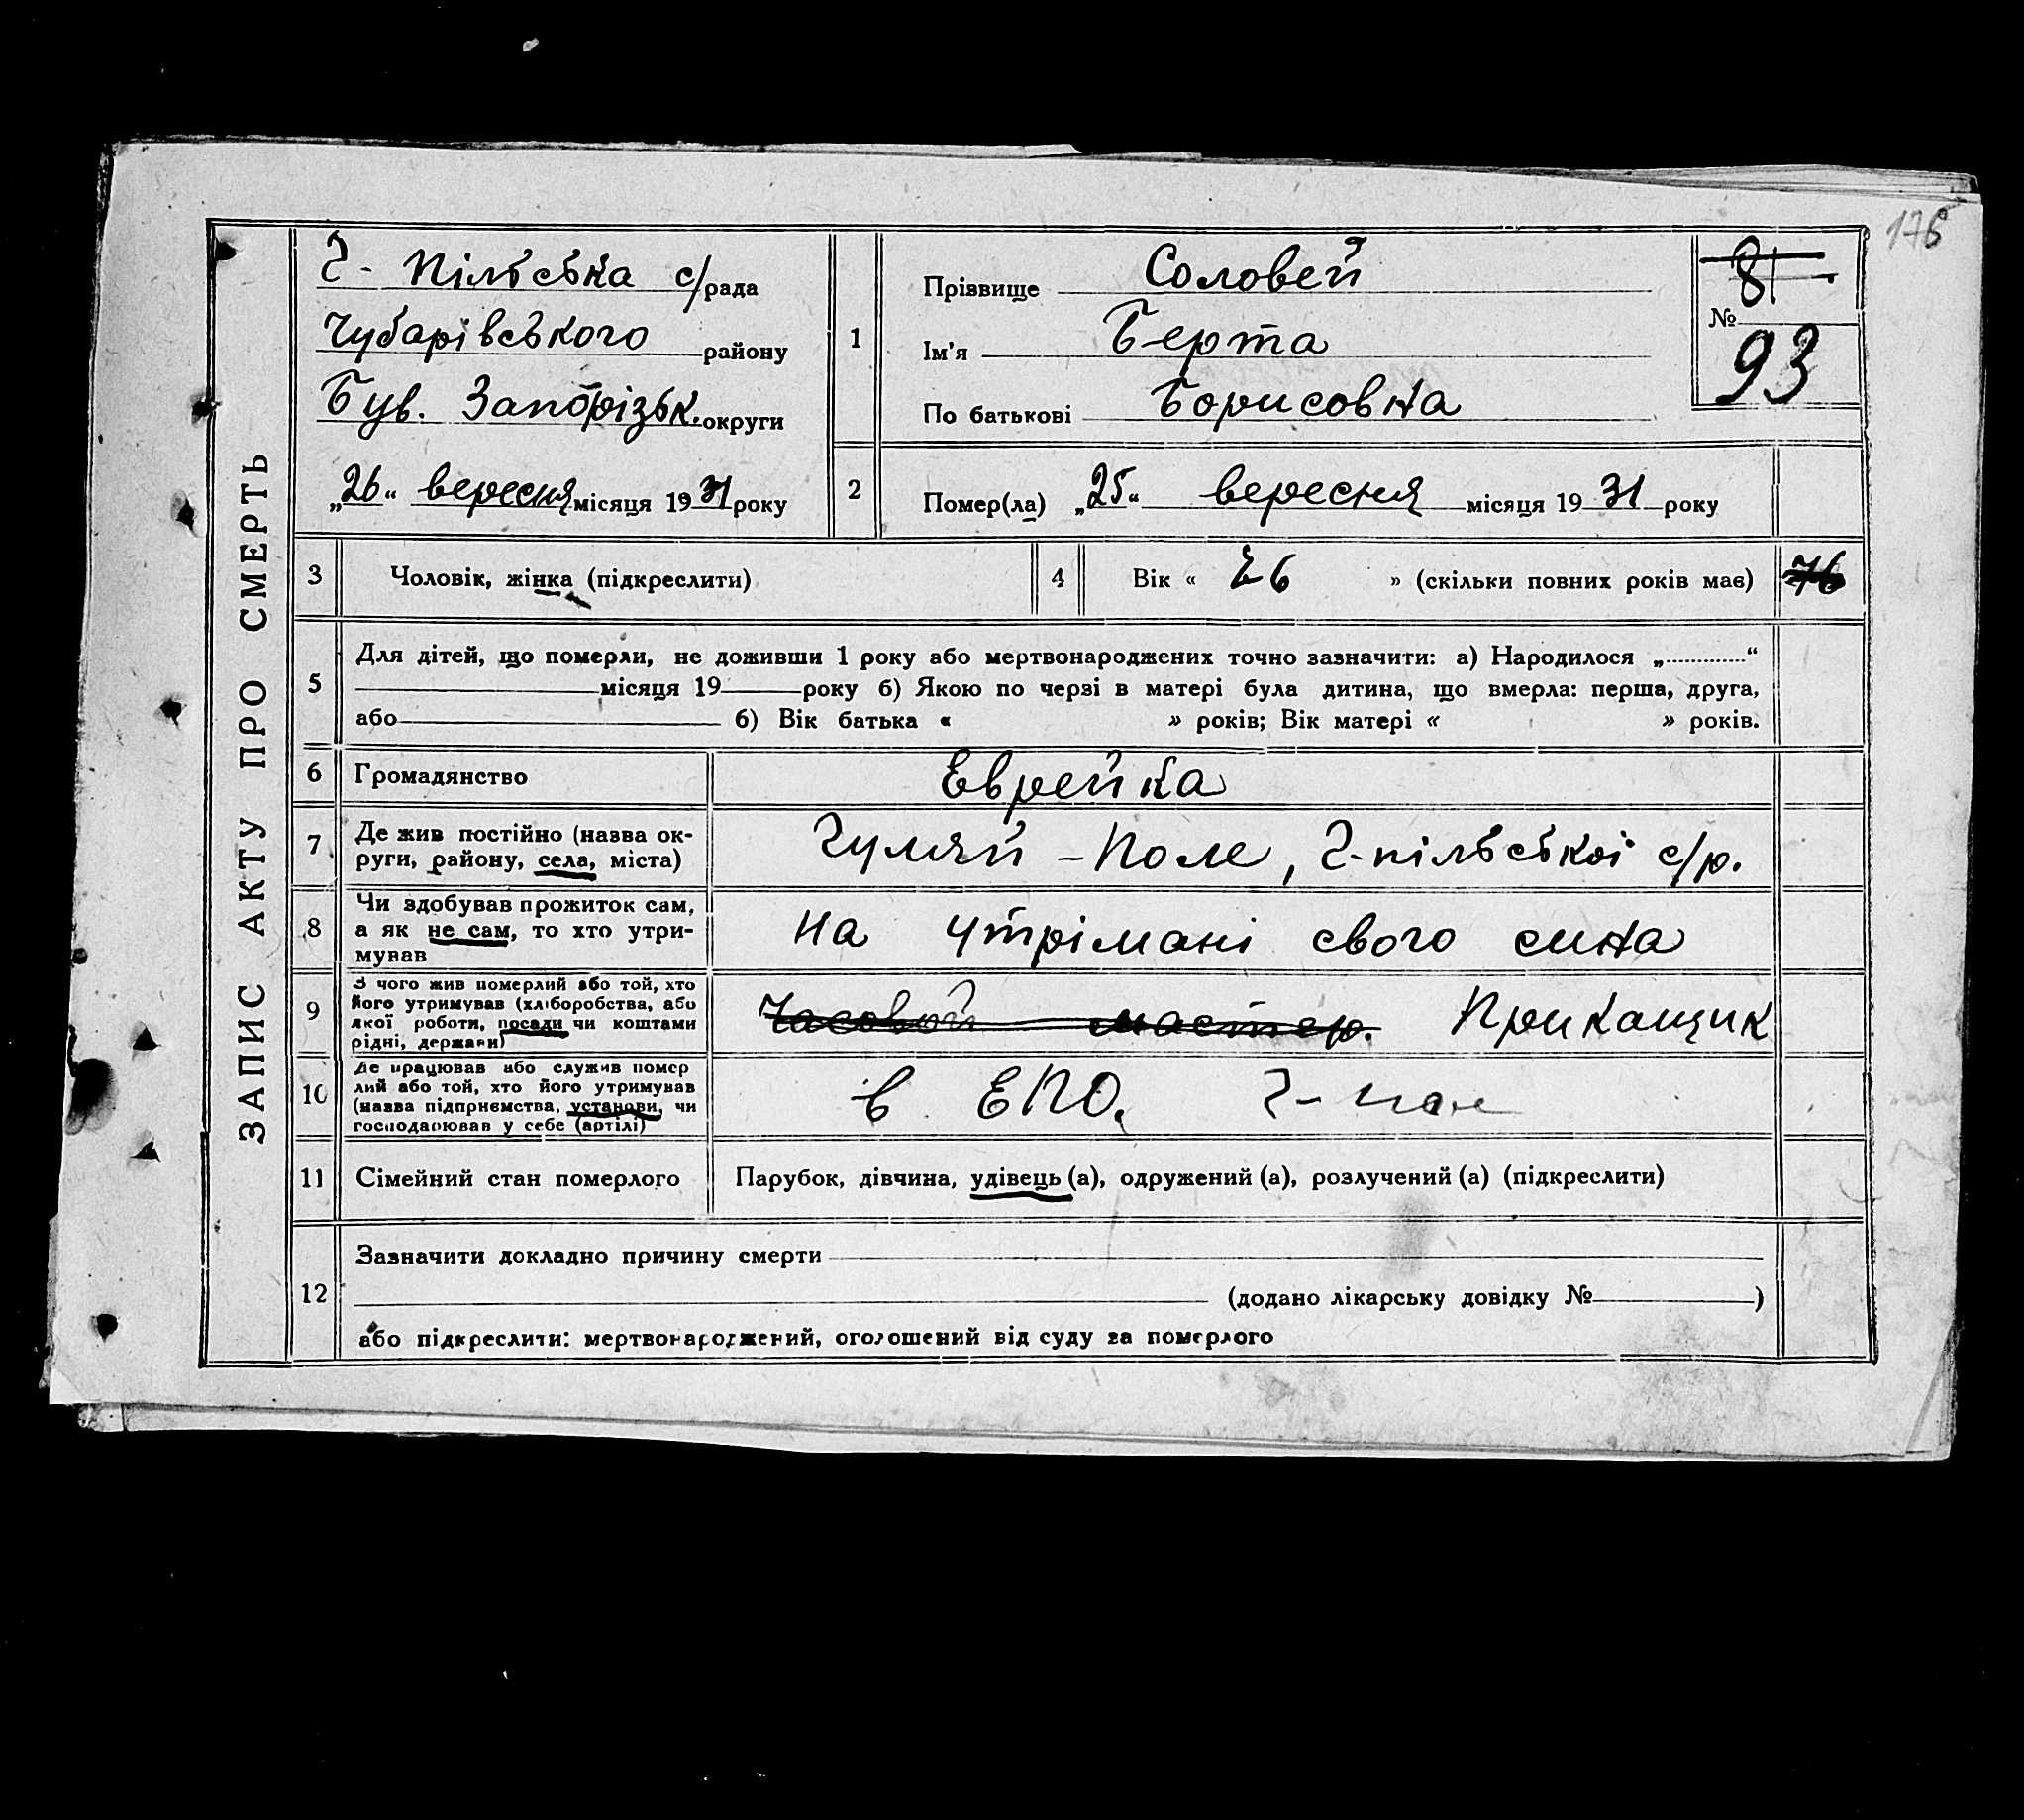 176
ЗАПИС АКТУ ПРО СМЕРТЬ
Г- Пільська с/рада
Чубарівського району
Був. Запорізьк. округи
„26“ вересня місяця 1931 року
1
Прізвище Соловей
Ім'я Берта
По батькові Борисовна
81
№
93
2
Помер(ла) „25“ вересня місяця 19 31 року
3 Чоловік, жінка (підкреслити)
4 Вік « 76 » (скільки повних років має) 76
5
Для дітей, що померли, не доживши 1 року або мертвонароджених точно зазначити: а) Народилося „............“
місяця 19 року б) Якою по черзі в матері була дитина, що вмерла: перша, друга,
або б) Вік батька « » років; Вік матері « » років.
6 Громадянство Еврейка
7 Де жив постійно (назва ок-
руги, району, села, міста)
Гуляй-Поле, Г-пільської с/р.
8 Чи здобував прожиток сам,
а як не сам, то хто утри-
мував
на утрімані свого сина
9 З чого жив померлий або той, хто
його утримував (хліборобства, або
якої роботи, посади чи коштами
рідні, держави)
Часовой мастер. Приказщик
10 Де працював або служив помер
лий або той, хто його утримував
(назва підприємства, установи, чи
господарював у себе (артілі)
в ЕПО, Г-
11 Сімейний стан померлого Парубок, дівчина, удівець (а), одружений (а), розлучений (а) (підкреслити)
12
Зазначити докладно причину смерти
(додано лікарську довідку № )
або підкреслити: мертвонароджений, оголошений від суду за померлого